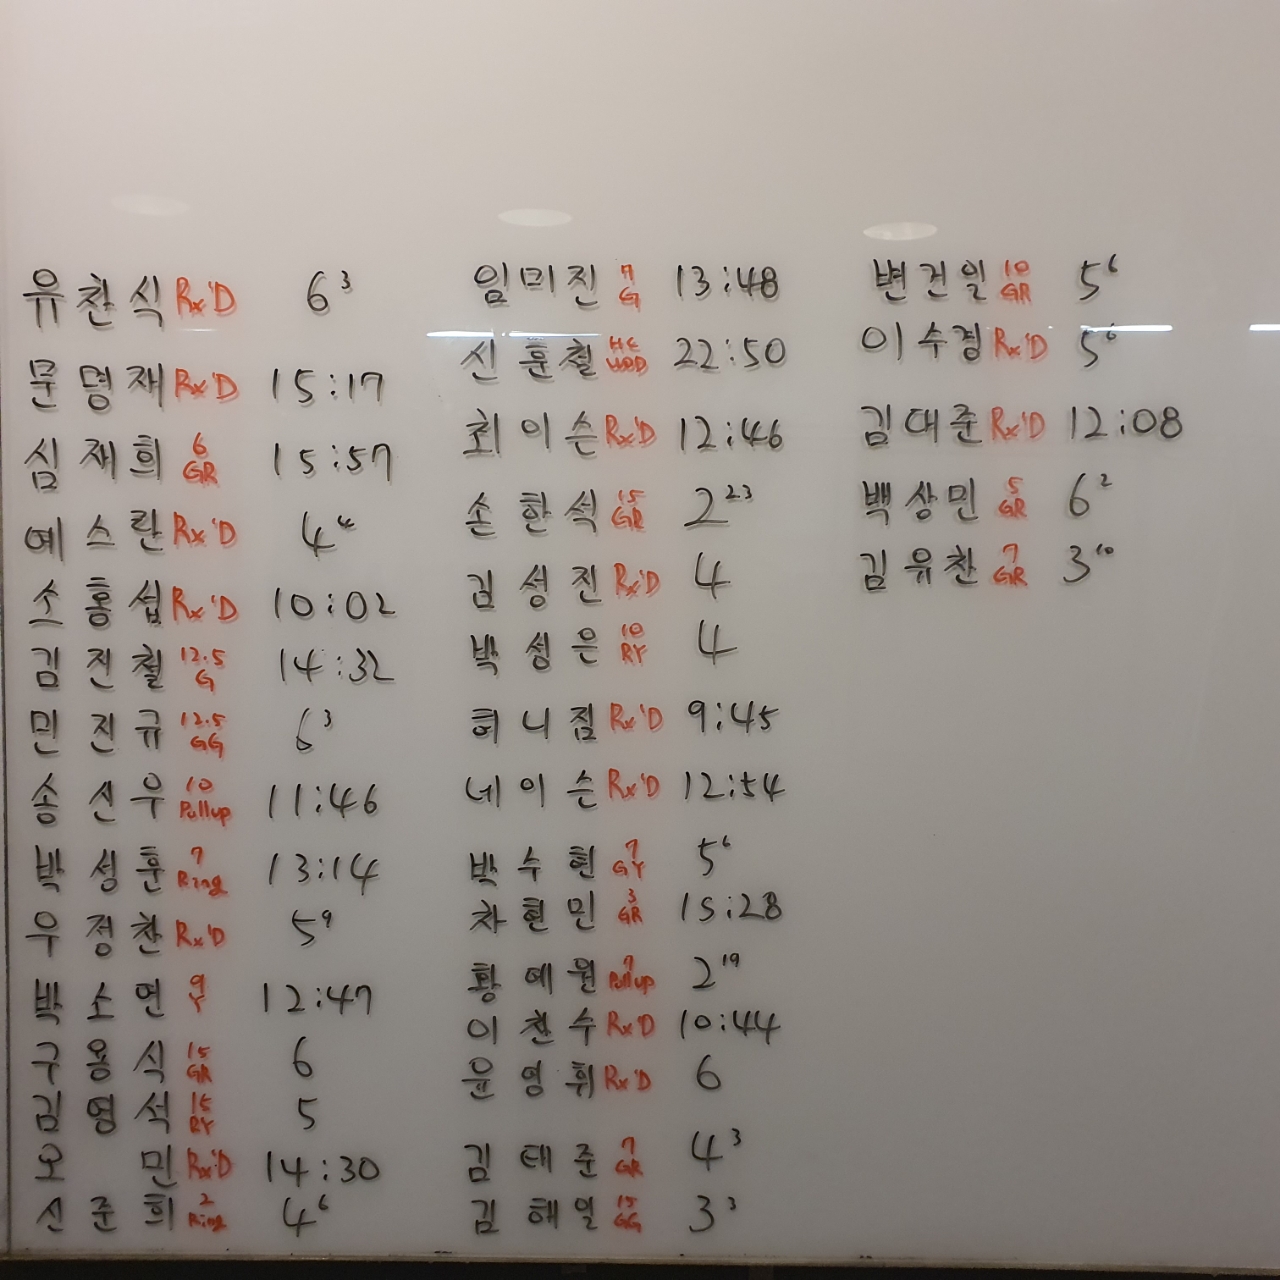 유찬식 Rx'D 6³
문명재 Rx'D 15:17
심재희 6 GR 15:57
예스란 Rx'D 4⁴
소홍섭 Rx'D 10:02
김진철 12.5 G 14:32
민진규 12.5 GG 6³
송신우 10 Pullup 11:46
박성훈 7 Ring 13:14
우정찬 Rx'D 5⁹
박소연 9 Y 12:47
구용식 15 GR 6
김영석 15 RY 5
오 민 Rx'D 14:30
신준희 2 Ring 4⁶
임미진 7 G 13:48
신훈철 22:50
최이슨 Rx'D 12:46
손한석 15 GR 2²³
김성진 Rx'D 4
박성은 10 RY 4
허니점 Rx'D 9:45
네이슨 Rx'D 12:54
박수현 7 GY 5⁶
차현민 3 GR 15:28
황예원 7 Pullup 2¹⁹
이찬수 Rx'D 10:44
윤영휘 Rx'D 6
김태준 7 GR 4³
김해일 15 GG 3³
변건일 10 GR 5⁶
이수경 Rx'D 5⁶
김대준 Rx'D 12:08
백상민 5 GR 6²
김유찬 7 GR 3¹⁰